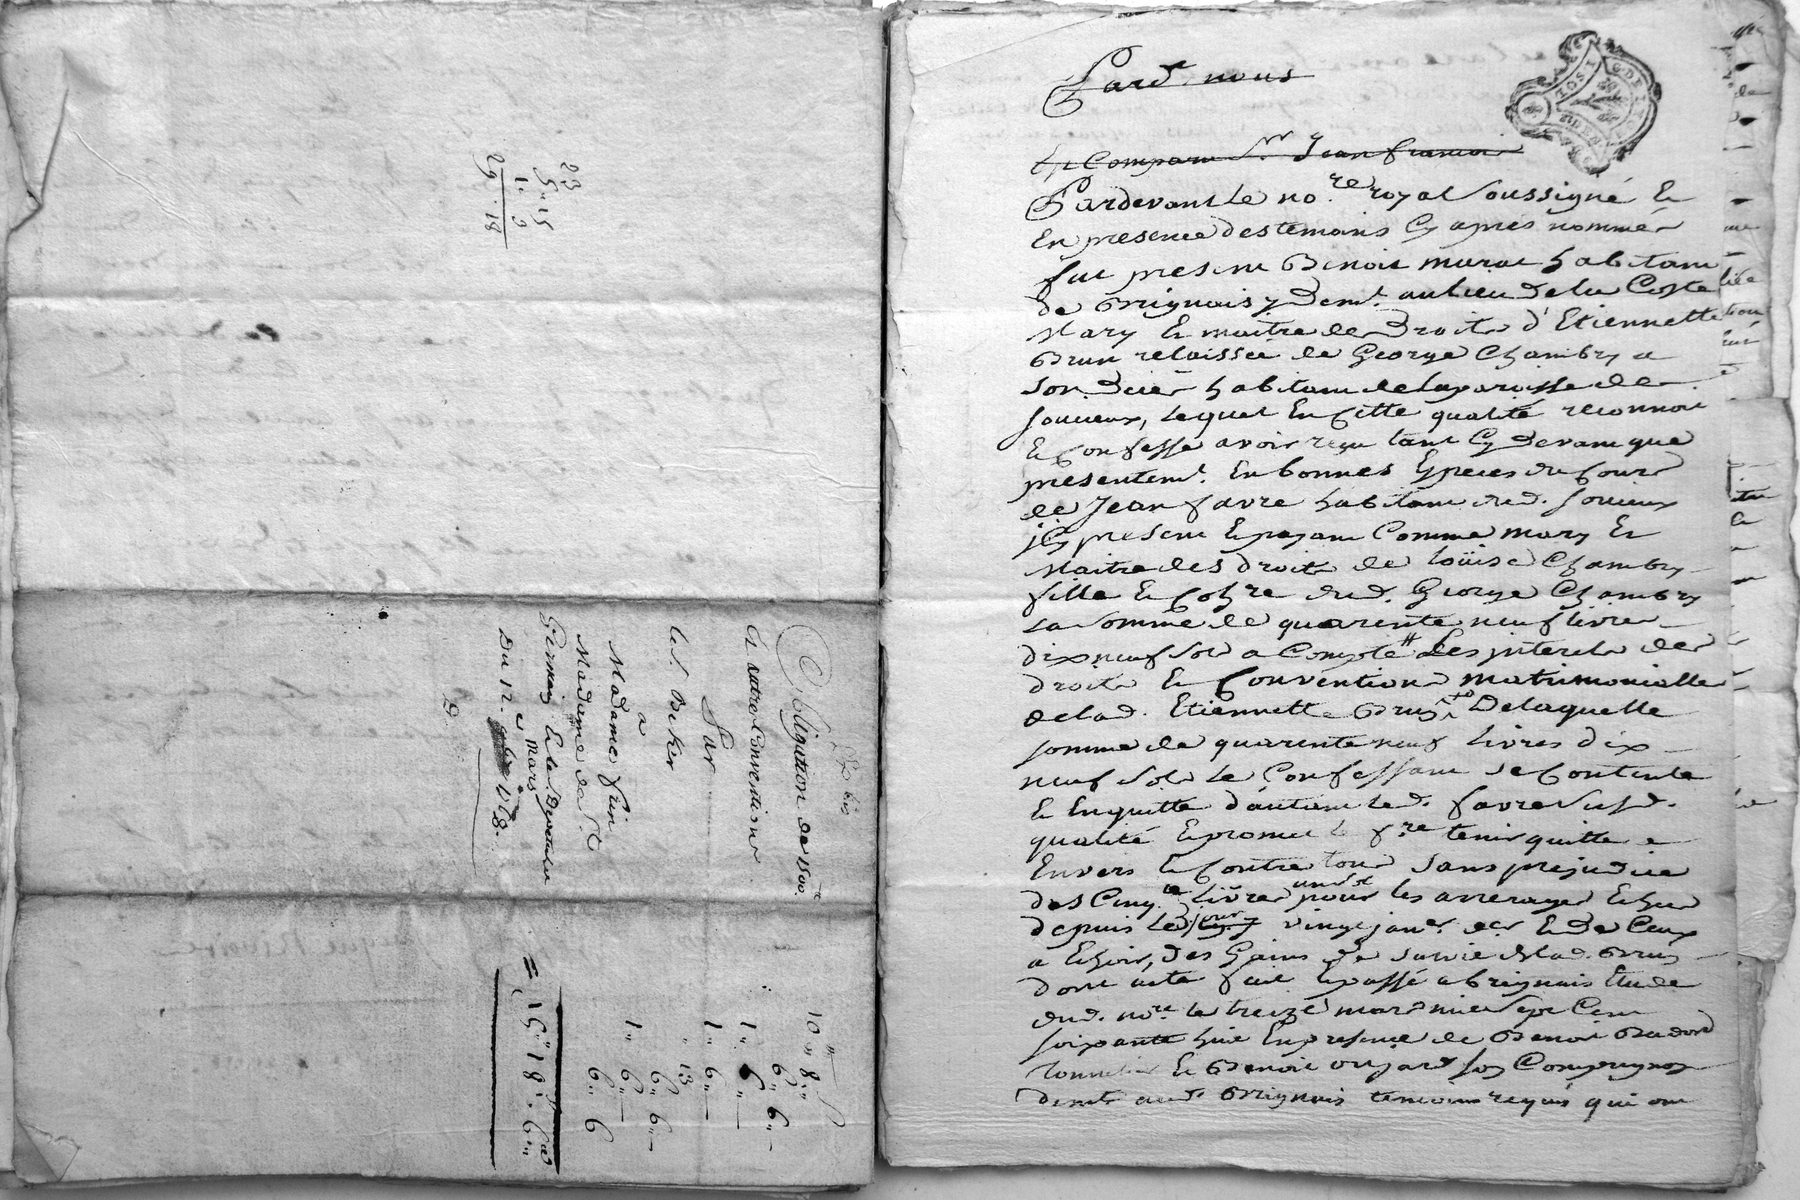 23
5 " 15
1 " 3
29 " 18
Obligation de 1500.tt
et autre Convention
Par
les. Beker
a
Madame frin
Madame de St
Germain
Du 12. Mars
10 " 8 "
6 " 6 "
1 " 6 "
1 " 6 "
" 13
6 " 6 "
1 " 6 "
6 " 6
15 " 18 " 6
Pard. nous
Est Comparu Sr. Jean francois
Pardevant le no.re royal soussigné et
En presence des temoins Cy apres nommés
fut present Benoit murat habitant
de Brignais y dem.t au lieu de la Coste
Mary et maitre des Droits d'Etiennette
Brun relaissée de George Chambry a
son Deces habitant de la paroisse de
soucieux, lequel En Cette qualité reconnoit
et Confesse avoir reçu tant Cy devant que
presentem.t En bonnes Especes du Cours
de Jean favre habitant dud. soucieux
icy present Et payant Comme mary Et
Maitre des droits de loüise Chambry
fille Et Cohre dud. George Chambry
La Somme de quarente neuf livres
dix neuf sols a Compte Des interets des
droits Et Conventions matrimonialles
de lad. Etiennette Brun Delaquelle
somme de quarente neuf livres dix
neuf sols le Confessant se Contente
Et En quitte d'autant led. favre Susd.
qualité Et promet le f.re tenir quitte
Envers Et Contre tous sans prejudice
des Cinq livres un sol pour les arrerages Echus
depuis le jour vingt janv.r der Et de Ceux
a Echoir, Des Gains de Survie de lad. Brun
dont acte fait Et passé a brignais Etude
dud. no.re le treize mars mil sept Cent
soixante huit En presence de Benoit
Tonnelier Et Benoit
dem.t aud. Brignais temoins requis qui ont